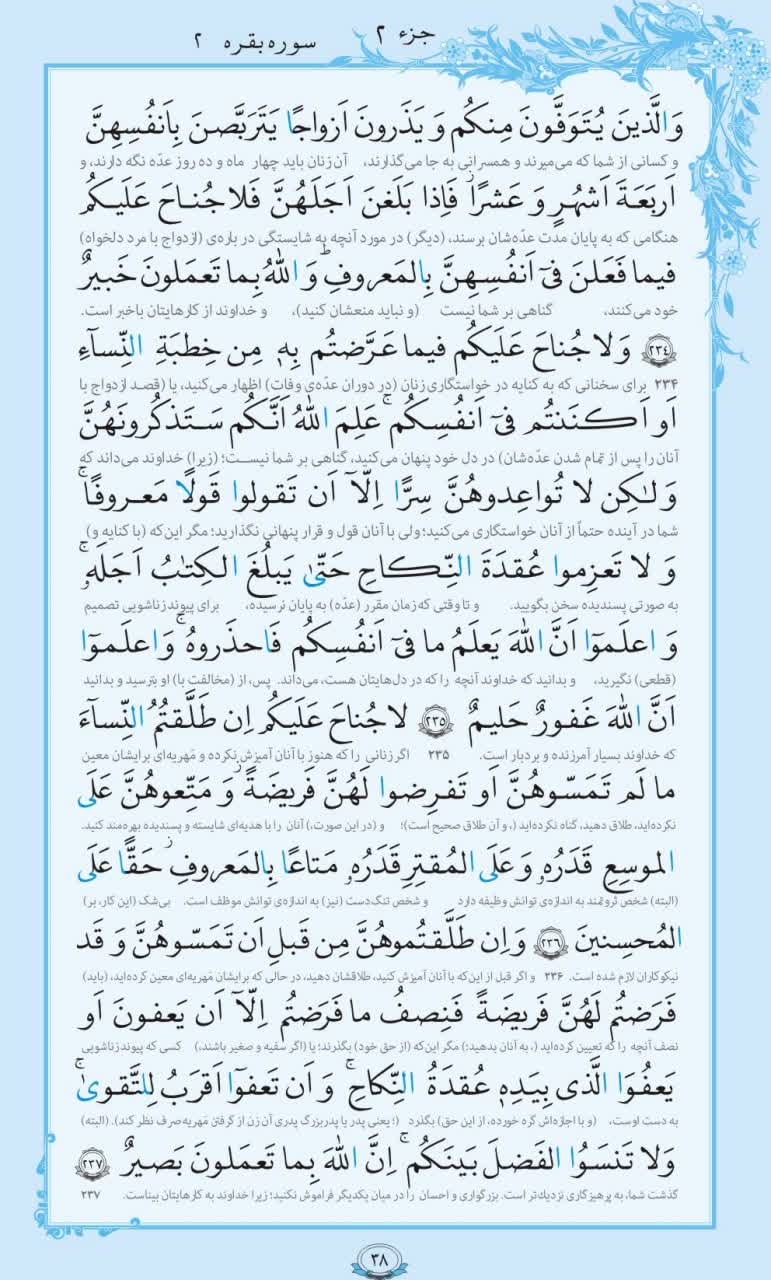 جزء ۲
سوره بقره ۲
وَالَّذینَ یُتَوَفَّونَ مِنکُم وَ یَذَرونَ اَزواجًا یَتَرَبَّصنَ بِاَنفُسِهِنَّ
و کسانی از شما که می‌میرند و همسرانی به جا می‌گذارند، آن زنان باید چهار ماه و ده روز عدّه نگه دارند، و
اَربَعَةَ اَشهُرٍ وَ عَشرًاۖ فَاِذا بَلَغنَ اَجَلَهُنَّ فَلا جُناحَ عَلَیکُم
هنگامی که به پایان مدت عدّه‌شان برسند، (دیگر) در مورد آنچه به شایستگی در باره‌ی (ازدواج با مرد دلخواه)
فیما فَعَلنَ فی اَنفُسِهِنَّ بِالمَعروفِؕ وَ اللهُ بِما تَعمَلونَ خَبیرٌ
خود می‌کنند، گناهی بر شما نیست (و نباید منعشان کنید)، و خداوند از کارهایتان باخبر است.
﴿۲۳۴﴾ وَلا جُناحَ عَلَیکُم فیما عَرَّضتُم بِهٖ مِن خِطبَةِ النِّسآءِ
۲۳۴ برای سخنانی که به کنایه در خواستگاری زنان (در دوران عدّه‌ی وفات) اظهار می‌کنید، یا (قصد ازدواج با
اَو اَکنَنتُم فی اَنفُسِکُمۚ عَلِمَ اللهُ اَنَّکُم سَتَذکُرونَهُنَّ
آنان را پس از تمام شدن عدّه‌شان) در دل خود پنهان می‌کنید، گناهی بر شما نیست؛ (زیرا) خداوند می‌داند که
وَلٰکِن لا تُواعِدوهُنَّ سِرًّا اِلّآ اَن تَقولوا قَولًا مَعروفًاۚ
شما در آینده حتماً از آنان خواستگاری می‌کنید؛ ولی با آنان قول و قرار پنهانی نگذارید؛ مگر این‌که (با کنایه و)
وَ لا تَعزِموا عُقدَةَ النِّکاحِ حَتّیٰ یَبلُغَ الکِتٰبُ اَجَلَهٗۚ
به صورتی پسندیده سخن بگویید. و تا وقتی که زمان مقرر (عدّه) به پایان نرسیده، برای پیوند زناشویی تصمیم
وَ اعلَموٓا اَنَّ اللهَ یَعلَمُ ما فی اَنفُسِکُم فَاحذَروهُۚ وَاعلَموٓا
(قطعی) نگیرید، و بدانید که خداوند آنچه را که در دل‌هایتان هست، می‌داند. پس، از (مخالفت با) او بترسید و بدانید
اَنَّ اللهَ غَفورٌ حَلیمٌ ﴿۲۳۵﴾ لا جُناحَ عَلَیکُم اِن طَلَّقتُمُ النِّسآءَ
که خداوند بسیار آمرزنده و بردبار است. ۲۳۵ اگر زنانی را که هنوز با آنان آمیزش نکرده و مَهریه‌ای برایشان معین
ما لَم تَمَسّوهُنَّ اَو تَفرِضوا لَهُنَّ فَریضَةًۚ وَ مَتِّعوهُنَّ عَلَی
نکرده‌اید، طلاق دهید، گناه نکرده‌اید (، و آن طلاق صحیح است)؛ و (در این صورت،) آنان را با هدیه‌ای شایسته و پسندیده بهره‌مند کنید.
الموسِعِ قَدَرُهٗ وَعَلَی المُقتِرِ قَدَرُهٗ مَتاعًا بِالمَعروفِۖ حَقًّا عَلَی
(البته) شخص ثروتمند به اندازه‌ی توانش وظیفه دارد و شخص تنگ‌دست (نیز) به اندازه‌ی توانش موظف است. بی‌شک (این کار، بر)
المُحسِنینَ ﴿۲۳۶﴾ وَاِن طَلَّقتُموهُنَّ مِن قَبلِ اَن تَمَسّوهُنَّ وَ قَد
نیکوکاران لازم شده است. ۲۳۶ و اگر قبل از این‌که با آنان آمیزش کنید، طلاقشان دهید، در حالی که برایشان مَهریه‌ای معین کرده‌اید، (باید)
فَرَضتُم لَهُنَّ فَریضَةً فَنِصفُ ما فَرَضتُم اِلّآ اَن یَعفونَ اَو
نصف آنچه را که تعیین کرده‌اید (، به آنان بدهید؛) مگر این‌که (از حق خود) بگذرند؛ یا (اگر سفیه و صغیر باشند،) کسی که پیوند زناشویی
یَعفُوَا الَّذی بِیَدِهٖ عُقدَةُ النِّکاحِۚ وَ اَن تَعفوٓا اَقرَبُ لِلتَّقویٰۚ
به دست اوست، (و با اجازه‌اش گره خورده، از این حق) بگذرد (؛ یعنی پدر یا پدربزرگ پدری آن زن از گرفتن مَهریه صرف نظر کند). (البته)
وَلا تَنسَوُا الفَضلَ بَینَکُمۚ اِنَّ اللهَ بِما تَعمَلونَ بَصیرٌ ﴿۲۳۷﴾
گذشت شما، به پرهیزگاری نزدیک‌تر است. بزرگواری و احسان را در میان یکدیگر فراموش نکنید؛ زیرا خداوند به کارهایتان بیناست. ۲۳۷
۳۸